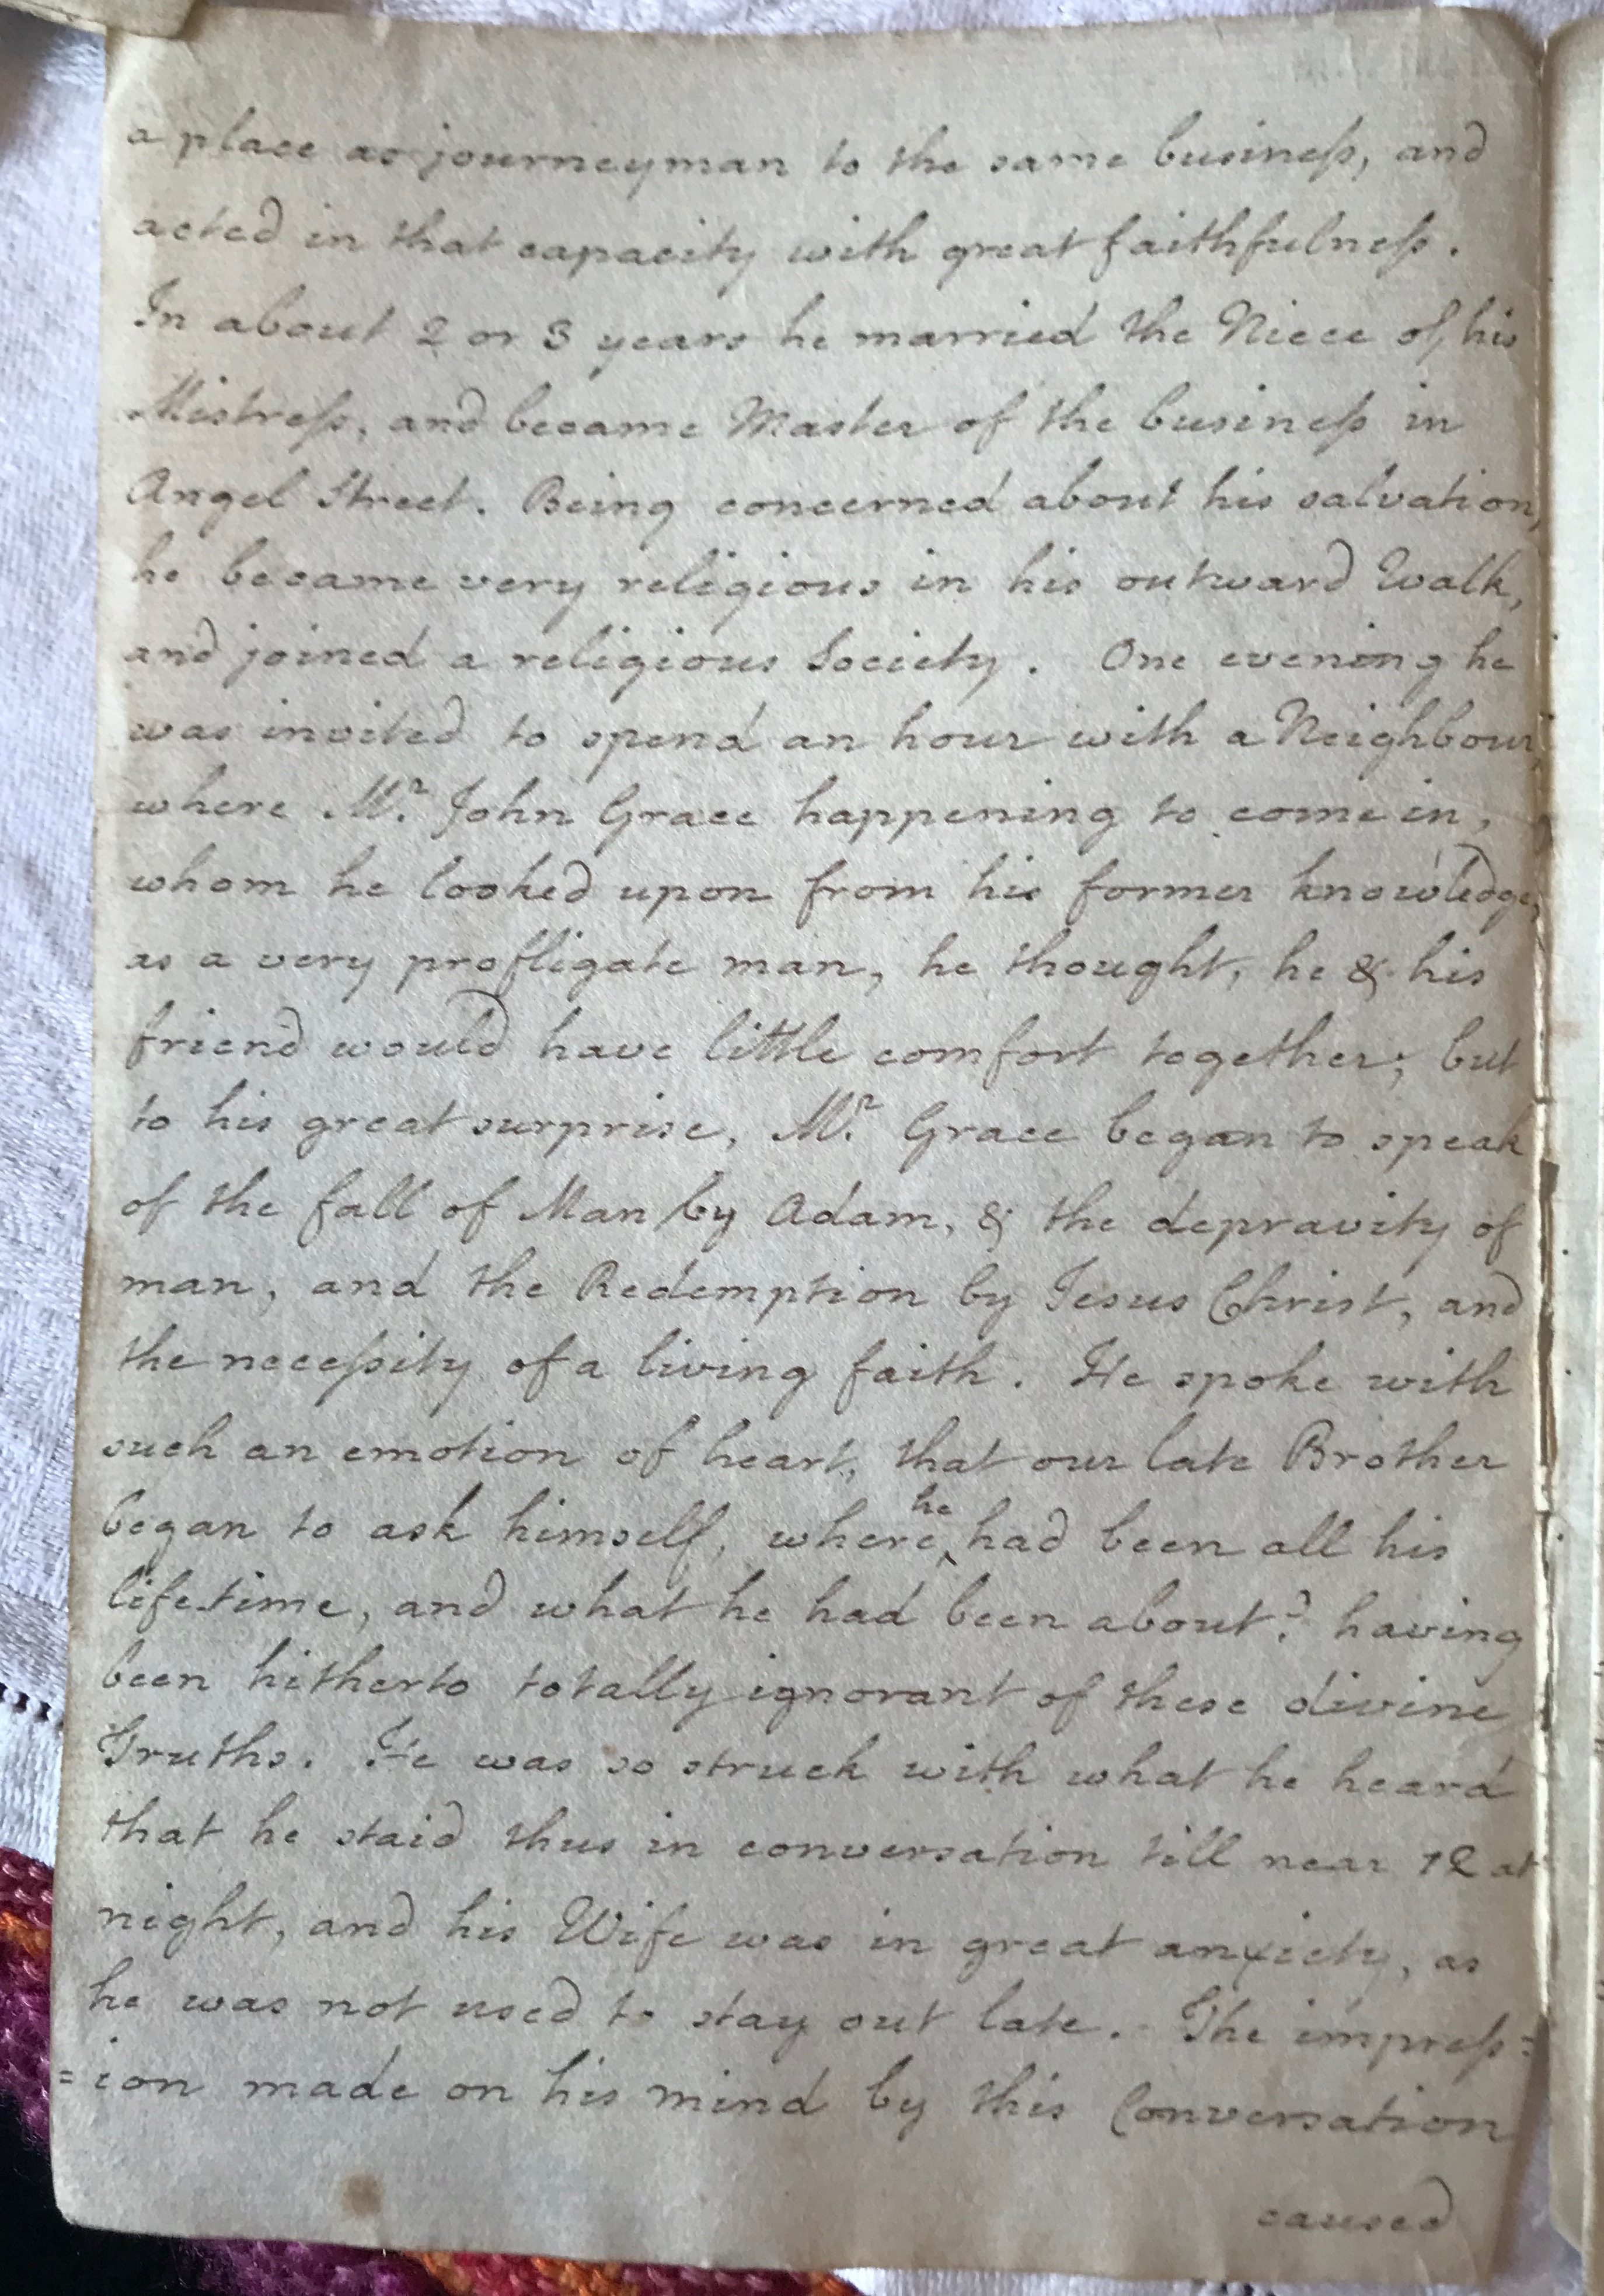 a place as journeyman to the same businefs, and
acted in that capacity with great faithfulnefs.
In about 2 or 3 years he married the Niece of his
Mistrefs, and became Master of the businefs in
Angel Street. Being concerned about his salvation,
he became very religious in his outward Walk,
and joined a religious Society. One evening he
was invited to spend an hour with a Neighbour,
where Mr. John Grace happening to come in,
whom he looked upon from his former knowledge,
as a very profligate man, he thought, he & his
friend would have little comfort together; but
to his great surprise, Mr. Grace began to speak
of the fall of Man by Adam, & the depravity of
man, and the Redemption by Jesus Christ, and
the necefsity of a living faith. He spoke with
such an emotion of heart, that our late Brother
began to ask himself, where he had been all his
life-time, and what he had been about? having
been hitherto totally ignorant of these divine
Truths. He was so struck with what he heard
that he staid thus in conversation till near 12 at
night, and his Wife was in great anxiety, as
he was not used to stay out late. The imprefs=
=ion made on his mind by this Conversation
caused